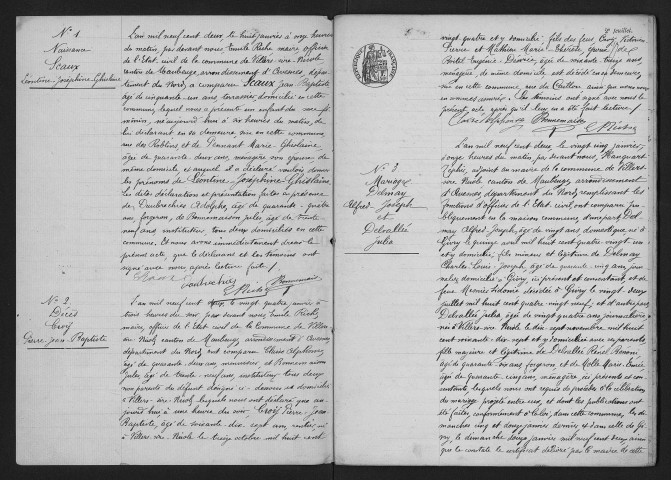 N° 1
Naissance
Scaux
Léontine-Joséphine-Ghislaine
L'an mil neuf cent deux, le huit janvier à onze heures
du matin, par devant nous Emile Riche maire officier
de l'Etat civil de la commune de Villers-sire-Nicole
canton de Maubeuge, arrondissement d'Avesnes, dépar-
tement du Nord, a comparu Scaux Jean Baptiste
âgé de cinquante-un ans, terrassier, domicilié en cette
commune, lequel nous a présenté un enfant du sexe fé-
minin, né aujourd'hui à heures du matin, de
lui déclarant en sa demeure, sise en cette commune,
rue des Roblins, et de Marie-Ghislaine,
âgée de quarante-deux ans, ménagère son épouse de
même domicile et auquel il a déclaré vouloir donner
les prénoms de Léontine-Joséphine-Ghislaine
Les dites déclaration et présentation faites en présence
de Adolphe, âgé de quarante-quatre
ans, forgeron, de Bonnemaison Jules, âgé de trente
neuf ans instituteur, tous deux domiciliés en cette
commune. Et nous avons immédiatement dressé le
présent acte, que le déclarant et les témoins ont
signé avec nous après lecture faite.
Bonnemaison
N° 2
Décès
Croÿ
Pierre Jean Baptiste
L'an mil neuf cent deux, le vingt quatre janvier à
trois heures du soir par devant nous Emile Riche,
maire, officier de l'Etat civil de la Commune de Villers
sire-Nicole, canton de Maubeuge, arrondissement d'Avesnes,
département du Nord, ont comparu
âgé de quarante-deux ans, et Bonnemaison
Jules, âgé de trente-neuf ans, instituteur tous deux
non parents du défunt désigné ci-dessous et domiciliés
à Villers-sire-Nicole, lesquels nous ont déclaré que au-
jourd'hui à une heure du soir, Croÿ Pierre Jean
Baptiste, âgé de soixante-dix-sept ans, rentier, né
à Villers-sire-Nicole le treize octobre mil huit cent
2e feuillet.
vingt-quatre et y domicilié, fils des feus Croÿ
Pierre et Mathieu Marie-Thérèse, époux de
Eugénie-Désirée, âgée de soixante treize ans,
ménagère, de même domicile est décédé en sa demeure,
sise en cette rue du ainsi que nous nous
en sommes assurés. Les témoins ont signé avec nous le
présent acte après qu'il leur en a été fait lecture.
Bonnemaison
Riche
N° 3
Mariage
Delmay
Alfred-Joseph
et
Delvallée
Julia
L'an mil neuf cent deux, le vingt cinq janvier,
à onze heures du matin, par devant nous,
adjoint au maire de la commune de Villers-
sire-Nicole canton de Maubeuge, arrondissement
d'Avesnes département du Nord, remplissant les
fonctions d'officier de l'Etat civil, ont comparu pu-
bliquement en la maison commune, d'une part Del-
may Alfred-Joseph, âgé de vingt ans domestique, né à
Givry le quinze avril mil huit cent quatre-vingt-un,
et y domicilié, fils mineur et légitime de Delmay
Charles-Louis-Joseph, âgé de quarante cinq ans, jour-
nalier, domicilié à Givry, ici présent et consentant, et de
feue Adonie décédée à Givry le vingt-deux
juillet mil huit cent quatre-vingt-neuf, et d'autre part,
Delvallée Julia, âgée de vingt quatre ans journalière,
née à Villers-sire-Nicole le dix-sept novembre mil huit
cent soixante-dix-sept et y domiciliée avec ses père et mère
fille majeure et légitime de Delvallée Désiré
âgé de quarante-six ans, forgeron et de Marie-Emma
âgée de quarante cinq ans, ménagère ici présents et con-
sentants, lesquels nous ont requis de procéder à la célébration
du mariage projeté entre eux, et dont les publications ont
été faites, conformément à la loi, dans cette commune, les di-
manches cinq et douze janvier dernier et dans celle de Gi-
vry, le dimanche douze janvier mil neuf cent deux ainsi
que le constate le certificat délivré par le maire de cette